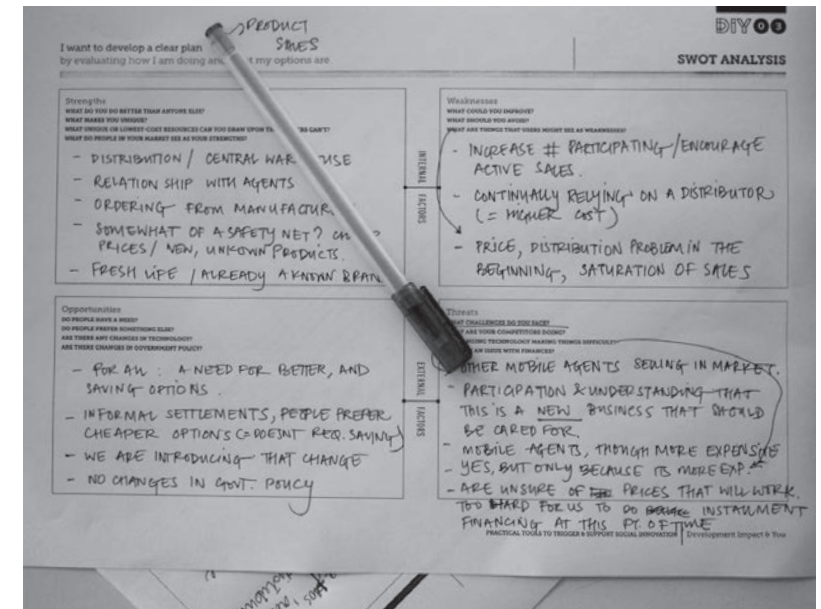 PRODUCT
SALES
DIY 03
I want to develop a clear plan
by evaluating how I am doing and my options are
SWOT ANALYSIS
Strengths
WHAT DO YOU DO BETTER THAN ANYONE ELSE?
WHAT MAKES YOU UNIQUE?
WHAT UNIQUE OR LOWEST-COST RESOURCES CAN YOU DRAW UPON CAN'T?
WHAT DO PEOPLE IN YOUR MARKET SEE AS YOUR STRENGTHS?
- DISTRIBUTION / CENTRAL WAR USE
- RELATION SHIP WITH AGENTS
- ORDERING FROM MANUFACTUR
- SOMEWHAT OF A SAFETY NET?
PRICES / NEW, UNKOWN PRODUCTS.
- FRESH LIFE / ALREADY A KNOWN BRAN
INTERNAL FACTORS
Weaknesses
WHAT COULD YOU IMPROVE?
WHAT SHOULD YOU AVOID?
WHAT ARE THINGS THAT USERS MIGHT SEE AS WEAKNESSES?
- INCREASE # PARTICIPATING / ENCOURAGE
ACTIVE SALES.
- CONTINUALLY RELYING ON A DISTRIBUTOR
(= HIGHER COST)
- PRICE, DISTRIBUTION PROBLEM IN THE
BEGINNING, SATURATION OF SALES
Opportunities
DO PEOPLE HAVE A NEED?
DO PEOPLE PREFER SOMETHING ELSE?
ARE THERE ANY CHANGES IN TECHNOLOGY?
ARE THERE CHANGES IN GOVERNMENT POLICY?
- FOR ALL : A NEED FOR BETTER, AND
SAVING OPTIONS.
- INFORMAL SETTLEMENTS, PEOPLE PREFER
CHEAPER OPTIONS (= DOESNT REQ. SAVING)
- WE ARE INTRODUCING THAT CHANGE
- NO CHANGES IN GOVT. POLICY
EXTERNAL FACTORS
Threats
WHAT CHALLENGES DO YOU FACE?
WHAT ARE YOUR COMPETITORS DOING?
CHANGING TECHNOLOGY MAKING THINGS DIFFICULT?
AN ISSUE WITH FINANCES?
OTHER MOBILE AGENTS SELLING IN MARKET.
- PARTICIPATION & UNDERSTANDING THAT
THIS IS A NEW BUSINESS THAT SHOULD
BE CARED FOR.
- MOBILE AGENTS, THOUGH MORE EXPENSIVE
- YES, BUT ONLY BECAUSE ITS MORE EXP.
- ARE UNSURE OF PRICES THAT WILL WORK.
TOO HARD FOR US TO DO INSTALLMENT
FINANCING AT THIS PT. OF TIME
PRACTICAL TOOLS TO TRIGGER & SUPPORT SOCIAL INNOVATION | Development Impact & You